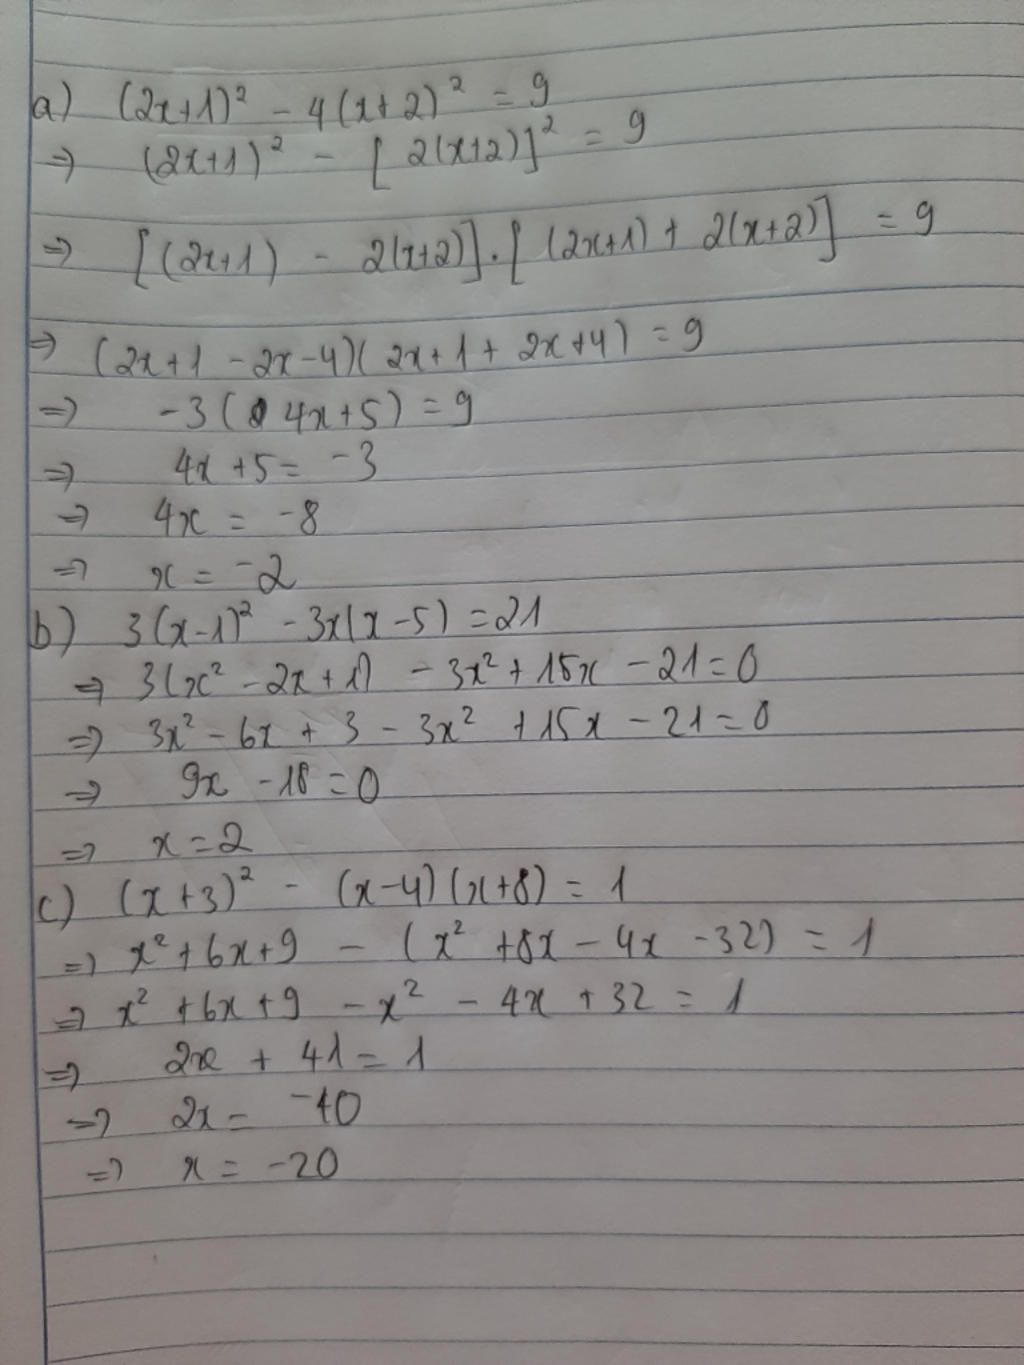 a) (2x+1)² - 4(x+2)² = 9
=> (2x+1)² - [2(x+2)]² = 9
=> [(2x+1) - 2(x+2)].[(2x+1) + 2(x+2)] = 9
=> (2x+1 -2x-4)(2x+1+ 2x+4) = 9
=> -3(4x+5) = 9
=> 4x +5 = -3
=> 4x = -8
=> x = -2
b) 3(x-1)² -3x(x-5) = 21
=> 3(x² -2x+1) -3x² + 15x -21=0
=> 3x² - 6x + 3 - 3x² +15x -21=0
=> 9x -18=0
=> x=2
c) (x+3)² - (x-4)(x+8) = 1
=> x² +6x+9 - (x² +8x - 4x -32) = 1
=> x² +6x+9 -x² - 4x +32 = 1
=> 2x + 41 = 1
=> 2x = -40
=> x = -20